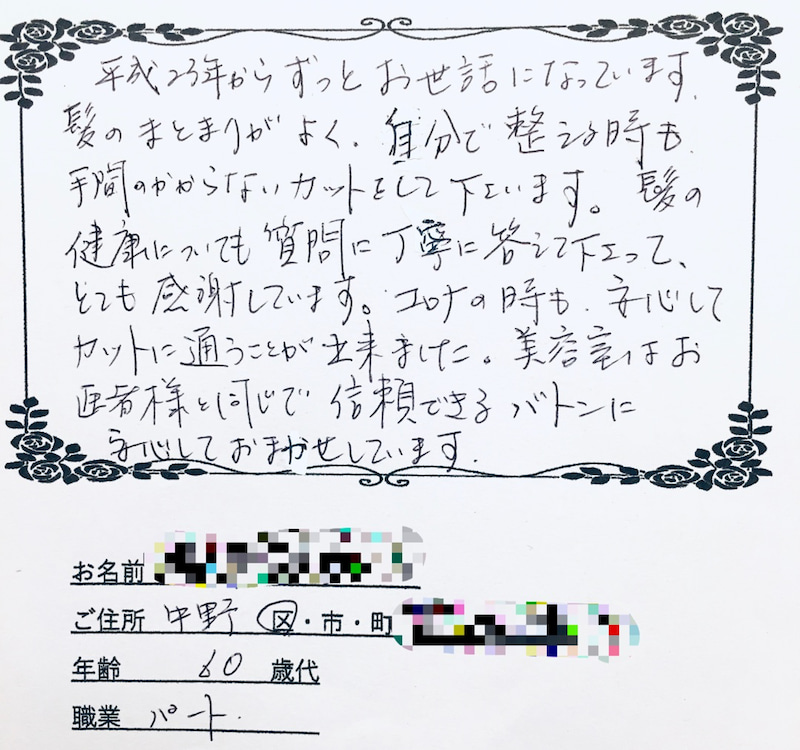 平成23年からずっとお世話になっています.
髪のまとまりがよく、自分で整える時も
手間のかからないカットをして下さいます。髪の
健康についても質問に丁寧に答えて下さって、
とても感謝しています。コロナの時も、安心して
カットに通うことが出来ました。美容室はお
医者様と同じで信頼できるバトンに
安心しておまかせしています.
お名前
ご住所 中野 区・市・町
年齢 60 歳代
職業 パート.